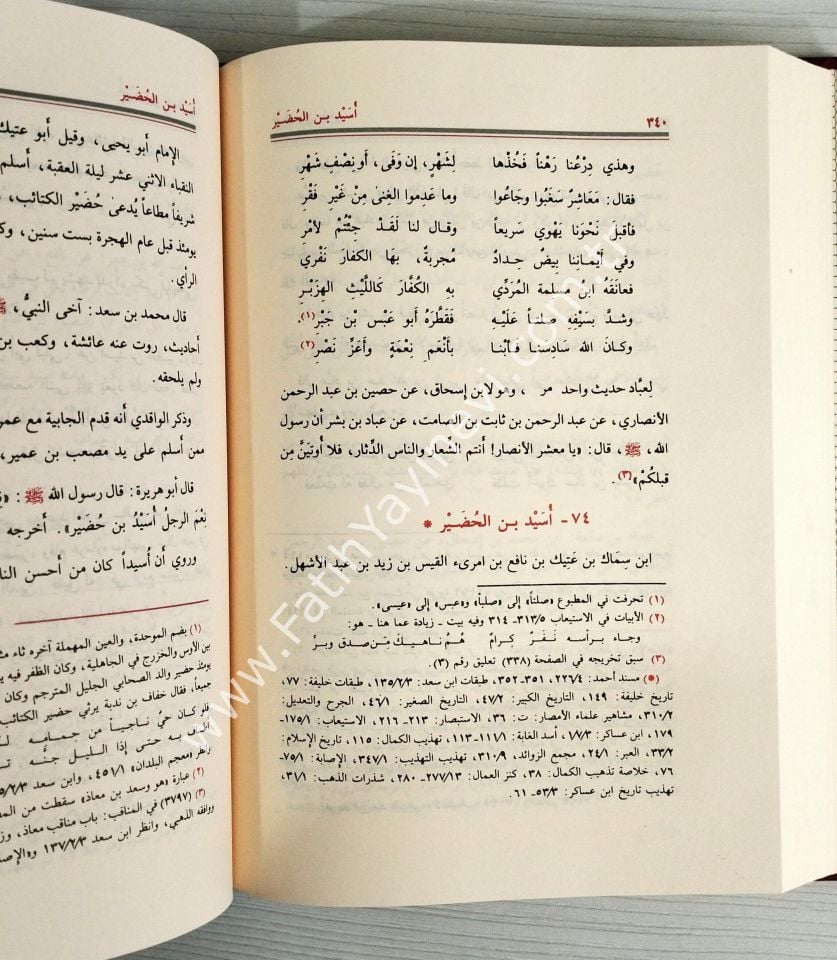 ٣٤٠ أُسَيْد بن الحُضَيْر
وهذي دِرْعُنا رَهْناً فَخُذْها لِشَهْرٍ، إن وَفَى، أو نِصْفِ شَهْرِ
فقال: مَعَاشِرٌ سَغَبُوا وجَاعُوا وما عَدِموا الغِنى مِنْ غَيْرِ فَقْرِ
فأقبلَ نَحْوَنا يَهْوي سَريعاً وقال لنا لَقَدْ جِئْتُمْ لأمْرِ
وفي أَيْمَانِنا بِيضٌ حِدادٌ مُجربةٌ، بهَا الكفارَ نَفْري
فعانَقَهُ ابن مسلمة المُرَدِّي بهِ الكُفَّارَ كَاللَّيْثِ الهِزَبْرِ
وشدَّ بسَيْفِهِ صلتاً عَلَيْهِ فَقَطَّرَهُ أبو عَبْسِ بْنِ جَبْرِ(١).
وكانَ الله سَادِسَنا فَأُبْنا بأَنْعَمِ نِعْمَةٍ وأعَزِّ نَصْرِ(٢)
لِعبَّاد حديث واحد مر ، وهو لابن إسحاق، عن حصين بن عبد الرحمن
الأنصاري، عن عبد الرحمن بن ثابت بن الصامت، عن عباد بن بشر أن رسول
الله، ﷺ، قال: «يا معشر الأنصار! أنتم الشِّعار والناس الدِّثار، فلا أُوتَيَنَّ مِن
قبلكُمْ»(٣).
٧٤ - أُسَيْد بن الحُضَيْر *
ابن سِمَاك بن عَتِيك بن نافع بن امرىء القيس بن زيد بن عبد الأشهل.
(١) تحرفت في المطبوع «صلتاً» إلى «صلباً» و«عبس» إلى «عيسى».
(٢) الأبيات في الاستيعاب ٣١٣/٥ - ٣١٤ وفيه بيت - زيادة عما هنا - هو:
وجاء برأسه نَفَرٌ كِرامٌ هُمُ ناهيكَ مِن صدق وبرِّ
(٣) سبق تخريجه في الصفحة (٣٣٨) تعليق رقم (٣).
(*) مسند أحمد: ٢٢٦/٤، ٣٥١-٣٥٢، طبقات ابن سعد: ١٣٥/٢/٣، طبقات خليفة: ٧٧،
تاريخ خليفة: ١٤٩، التاريخ الكبير: ٤٧/٢، التاريخ الصغير: ٤٦/١، الجرح والتعديل:
٣١٠/٢، مشاهير علماء الأمصار: ت: ٣٦، الاستبصار: ٢١٣- ٢١٦، الاستيعاب: ١٧٥/١-
١٧٩، ابن عساكر: ١/٧/٣، أسد الغابة: ١١١/١-١١٣، تهذيب الكمال: ١١٥، تاريخ الإسلام:
٣٣/٢، العبر: ٢٤/١، مجمع الزوائد، ٣١٠/٩، تهذيب التهذيب: ٣٤٧/١، الإصابة: ٧٥/١-
٧٦، خلاصة تذهيب الكمال: ٣٨، كنز العمال: ٢٧٧/١٣- ٢٨٠، شذرات الذهب: ٣١/١،
تهذيب تاريخ ابن عساكر: ٥٣/٣- ٦١.
أُسَيْد بن الحُضَيْر
الإمام أبو يحيى، وقيل أبو عتيك
النقباء الاثني عشر ليلة العقبة، أسلم
شريفاً مطاعاً يُدعى حُضَيْر الكتائب،
يومئذ قبل عام الهجرة بست سنين،
الرأي.
قال محمد بن سعد: آخى النبيُّ، ﷺ
أحاديث، روت عنه عائشة، وكعب بن
ولم يلحقه.
وذكر الواقدي أنه قدم الجابية مع عمر
ممن أسلم على يد مصعب بن عمير،
قال أبو هريرة: قال رسول الله ﷺ:
نِعْمَ الرجلُ أُسَيْدُ بن حُضَيْر». أخرجه
وروي أن أُسيداً كان من أحسن
(١) بضم الموحدة، والعين المهملة آخره ثاء
بين الأوس والخزرج في الجاهلية، وكان الظفر فيه
يومئذ حضير والد الصحابي الجليل المترجم وكان
جميعاً، فقال خفاف بن ندبة يرثي حضير الكتائب
فلو كان حيٌّ ناجياً من حِمامِه
أطاف به حتى إذا الليل جنَّه
وانظر «معجم البلدان» ٤٥١/١، وابن سعد
(٢) عبارة «هو وسعد بن معاذ» سقطت من
(٣) (٣٧٩٧) في المناقب: باب مناقب معاذ،
ووافقه الذهبي، وانظر ابن سعد ١٣٧/٢/٣
www.FatihYayinevi.com.tr